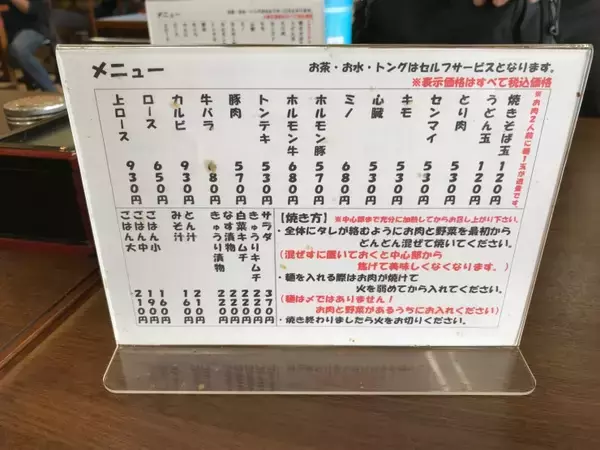 メニュー
お茶・お水・トングはセルフサービスとなります。
※表示価格はすべて税込価格
※お肉2人前に麺1玉が適量です。
焼きそば玉 120円
うどん玉 120円
とり肉 530円
センマイ 530円
キモ 530円
心臓 530円
ミノ 680円
ホルモン豚 570円
ホルモン牛 680円
トンテキ 530円
豚肉 570円
牛バラ 680円
カルビ 930円
ロース 650円
上ロース 930円
【焼き方】※中心部まで充分に加熱してからお召し上がり下さい。
・全体にタレが絡むようにお肉と野菜を最初から
どんどん混ぜて焼いてください。
(混ぜずに置いておくと中心部から
焦げて美味しくなくなります。)
・麺を入れる際はお肉が焼けて
火を弱めてから入れてください。
(麺は〆ではありません!
お肉と野菜があるうちにお入れください)
・焼き終わりましたら火をお切りください。
サラダ 300円
きゅうりキムチ 270円
白菜キムチ 220円
なす漬物 220円
きゅうり漬物 220円
とん汁 210円
みそ汁 160円
ごはん小 160円
ごはん中 190円
ごはん大 210円